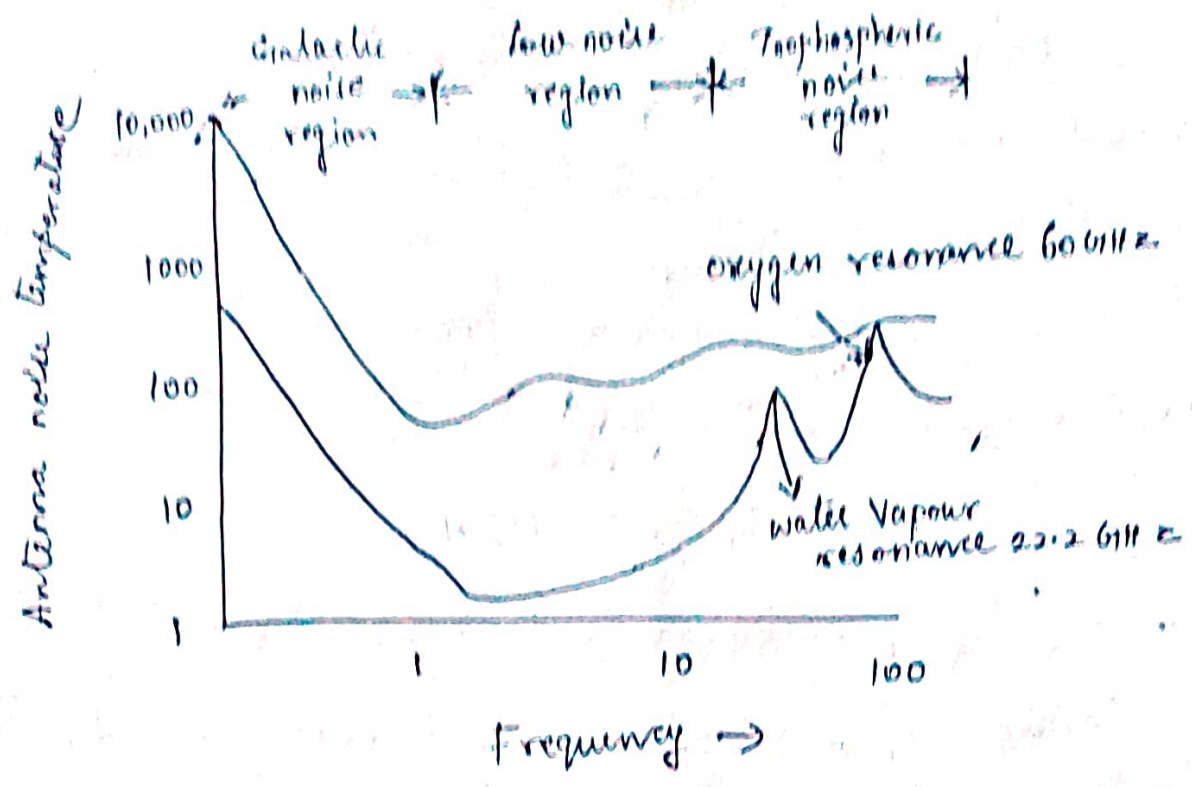 Galactic
noise
region
low noise
region
noise
region
Antenna noise temperature
10,000
1000
100
10
1
oxygen resonance 60 GHz
water Vapour
resonance 22.2 GHz
1
10
100
Frequency →